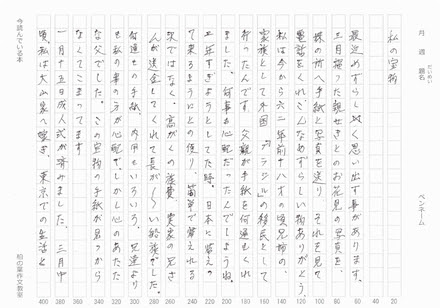 月 週 題名 だいめい ペンネーム
私の宝物
最近めずらしく思い出す事があります。
三月撮った親せきとのお花見の写真を、
姉の所へ手紙と写真を送り それを見て
電話をくれ こんなめずらしい物ありがとう。
私は今から六二年前十八才の頃兄姉の、
家族として外国「ブラジル」の移民として
行ったんです。父親が手紙を何通もくれ
ました。何事も心配だったんでしょうね。
二年すぎようとしてた時。日本に帰って
来るようにとの便り、簡単で帰れる
訳ではなく、高がくの旅費 実家の兄さ
んが送金してくれて長が〜い船旅でした。
何通もの手紙、内用もいろいろ、兄達より
も私の事の方が心配で。しかし心のあたた
な父でした。この宝物の手紙が見つから
なくてこまってます
一月十五日成人式が済みました。三月中
頃私は大山家へ嫁ぎ、東京での生活と
20
40
60
80
100
120
140
160
180
200
220
240
260
280
300
320
340
360
380
400
今読んでいる本
柏の葉作文教室